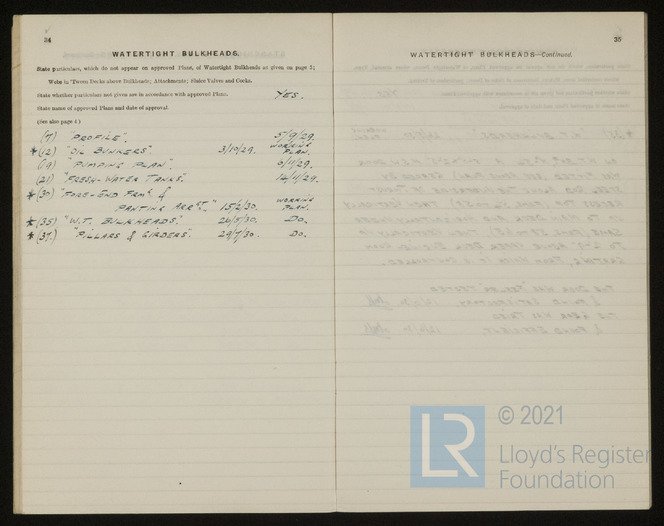 34
WATERTIGHT BULKHEADS.
State particulars, which do not appear on approved Plans, of Watertight Bulkheads as given on page 5;
Webs in 'Tween Decks above Bulkheads; Attachments; Sluice Valves and Cocks.
State whether particulars not given are in accordance with approved Plans. YES.
State name of approved Plans and date of approval.
(See also page 4)
(7) "PROFILE". 5/9/29.
* (12) "OIL BUNKERS". 3/10/29. WORKING PLAN.
(19) "PUMPING PLAN". 9/11/29.
(21) "FRESH-WATER TANKS". 14/11/29.
* (30) "FORE-END FRMG &
PANTING ARRT." 15/2/30. WORKING PLAN.
* (35) "W.T. BULKHEADS." 26/5/30. DO.
* (37.) "PILLARS & GIRDERS". 29/7/30. DO.
35
WATERTIGHT BULKHEADS—Continued.
LR
© 2021
Lloyd's Register
Foundation